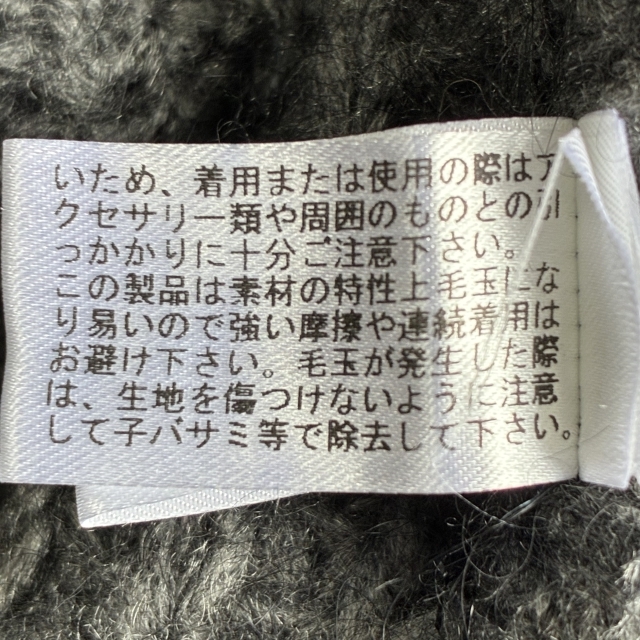 いため、着用または使用の際はア
クセサリー類や周囲のものとの引
っかかりに十分ご注意下さい。
この製品は素材の特性上毛玉にな
り易いので強い摩擦や連続着用は
お避け下さい。毛玉が発生した際
は、生地を傷つけないように注意
して子バサミ等で除去して下さい。